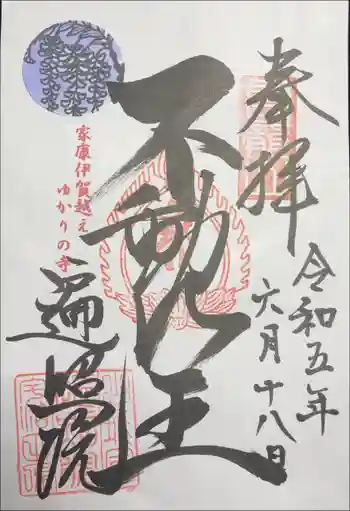 奉拝
令和五年
六月十八日
不動王
家康伊賀越え
ゆかりの寺
遍照院